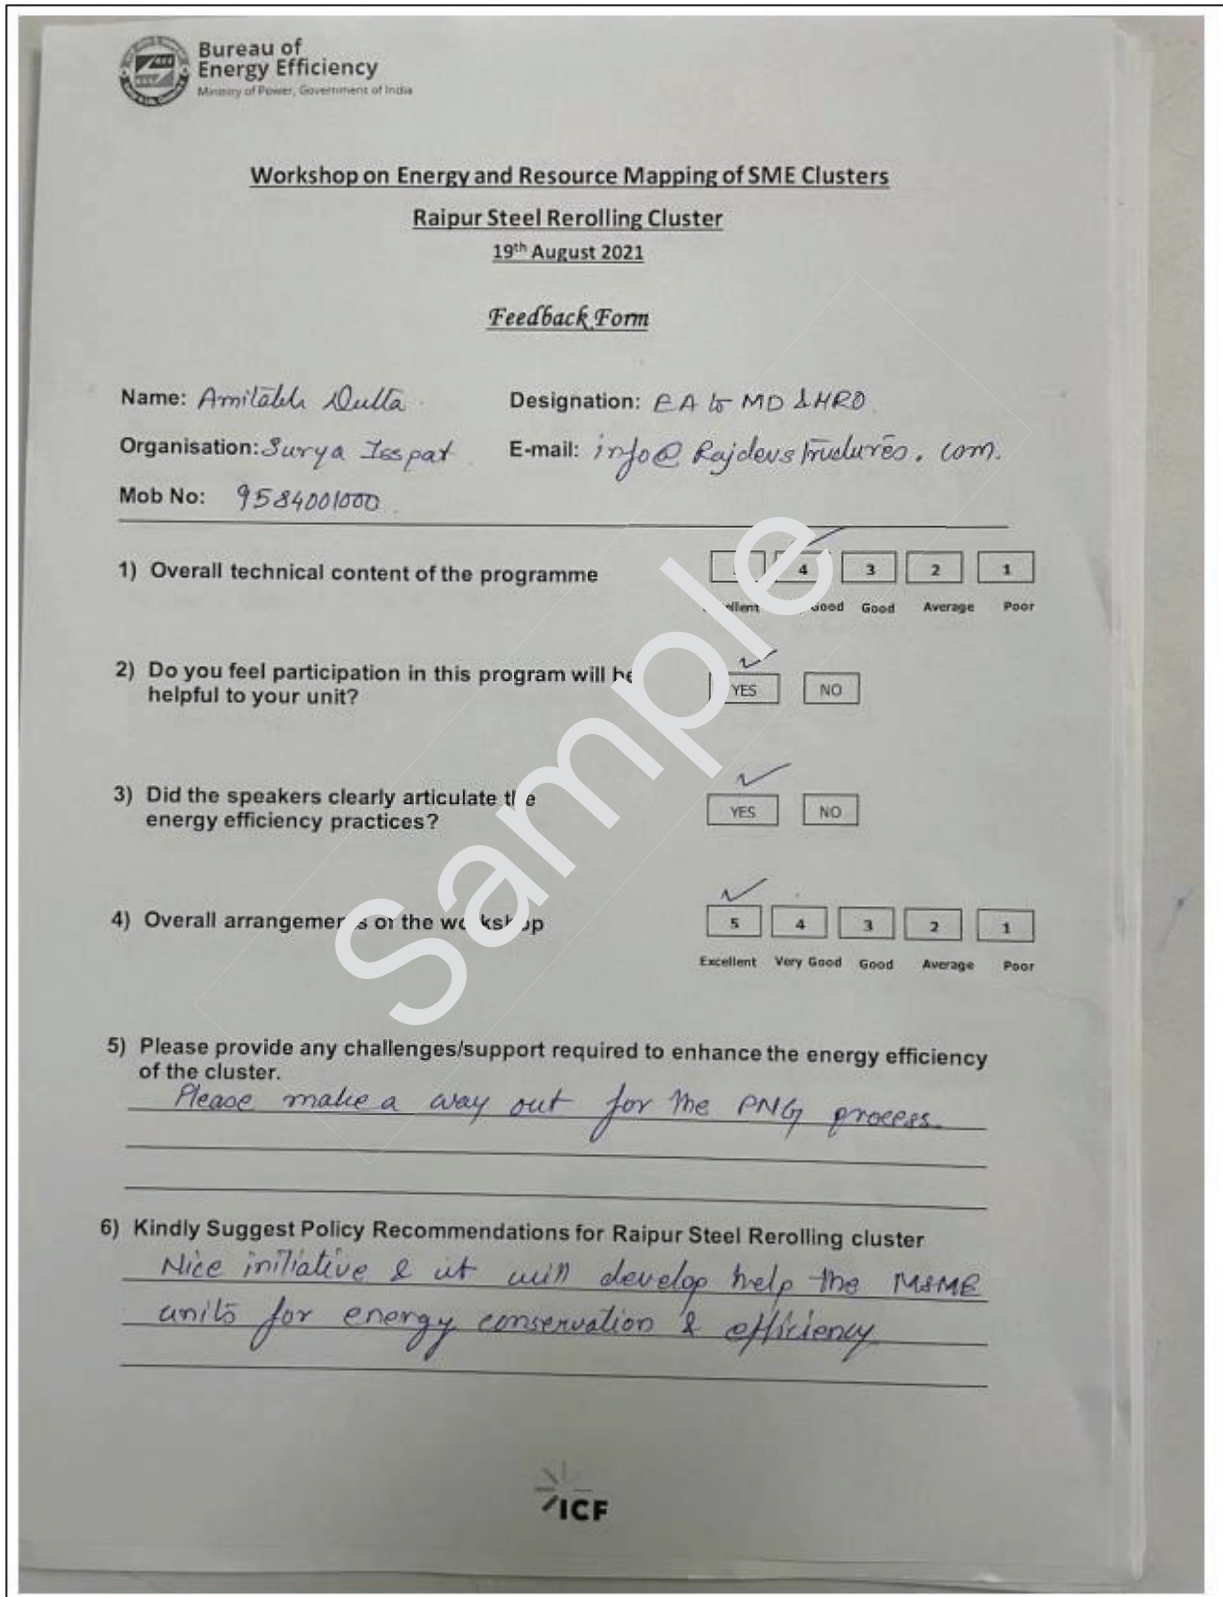 Bureau of
Energy Efficiency
Ministry of Power, Government of India
Workshop on Energy and Resource Mapping of SME Clusters
Raipur Steel Rerolling Cluster
19th August 2021
Feedback Form
Name: Amitabh Dutta Designation: EA to MD & HRO
Organisation: Surya Isspat E-mail: info@Rajdevstructures.com.
Mob No: 9584001000
1) Overall technical content of the programme 4 3 2 1
Good Good Average Poor
2) Do you feel participation in this program will be YES NO
helpful to your unit?
3) Did the speakers clearly articulate the YES NO
energy efficiency practices?
4) Overall arrangements of the workshop 5 4 3 2 1
Excellent Very Good Good Average Poor
5) Please provide any challenges/support required to enhance the energy efficiency
of the cluster.
Please make a way out for the PNG process
6) Kindly Suggest Policy Recommendations for Raipur Steel Rerolling cluster
Nice initiative & it will develop help the MSME
units for energy conservation & efficiency
ICF
Sample